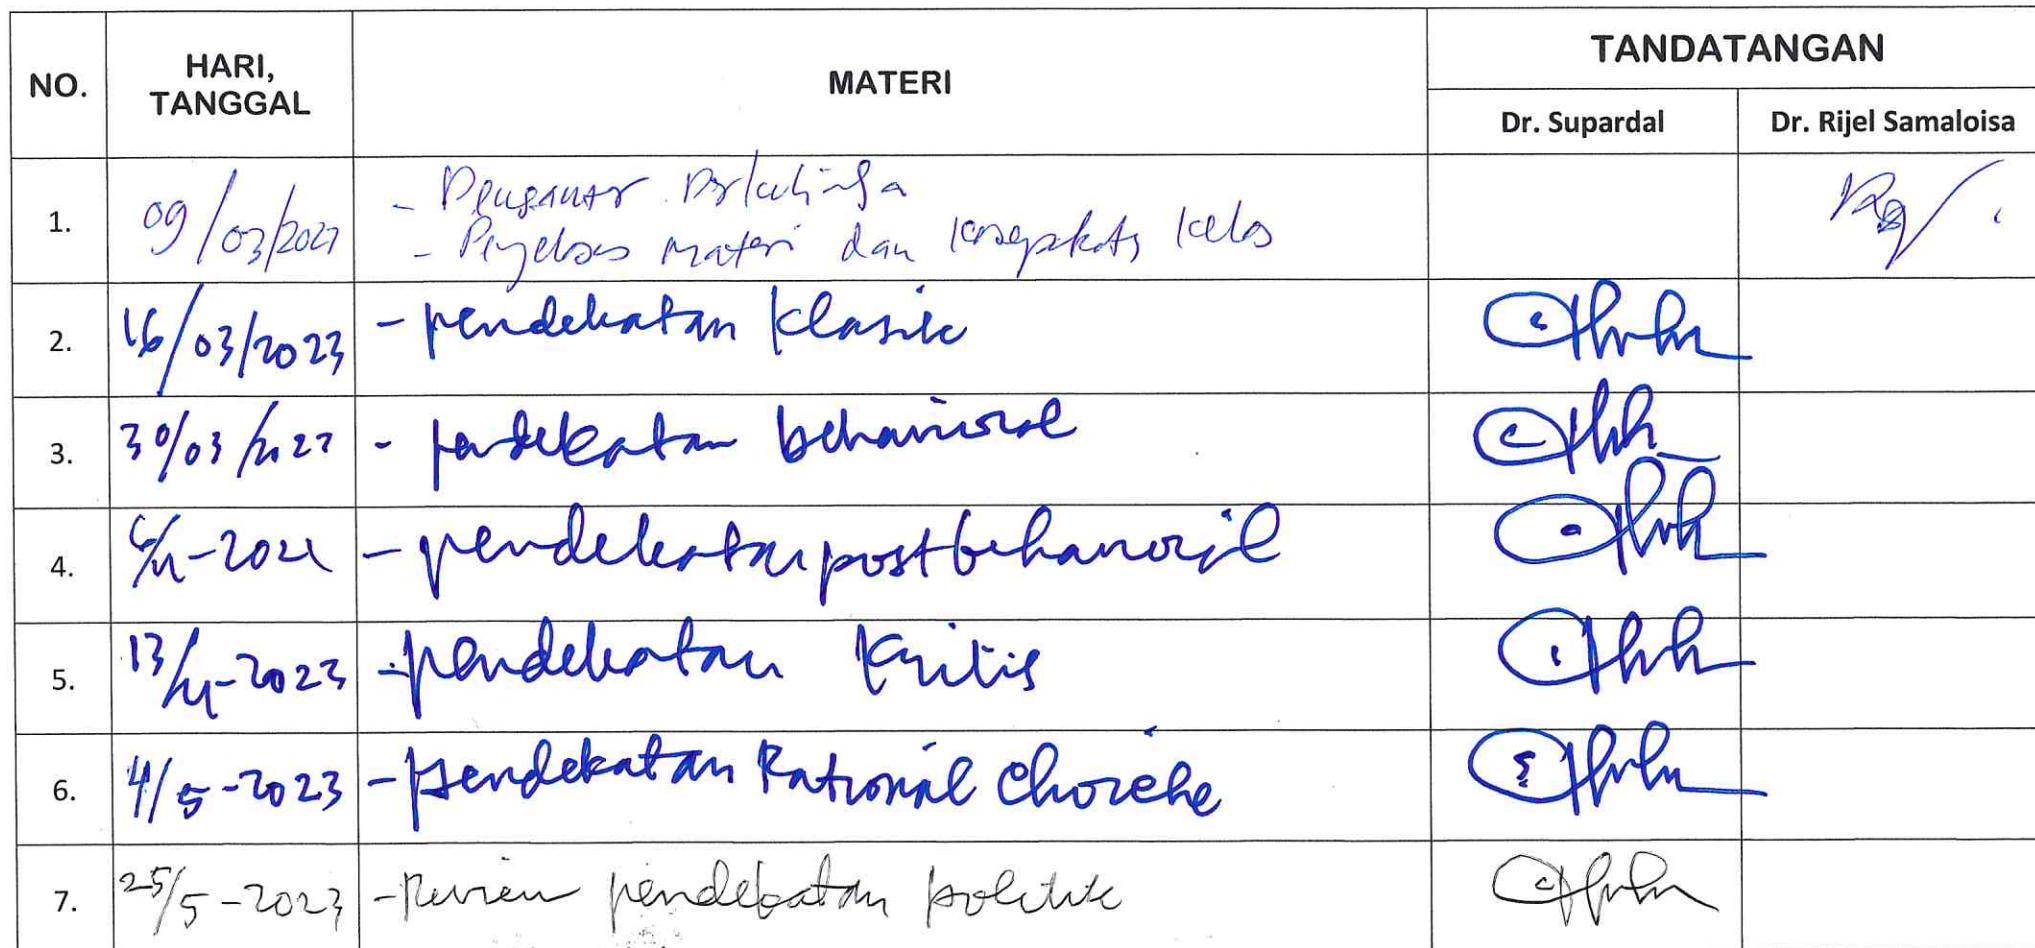 NO. HARI, TANGGAL MATERI TANDATANGAN
Dr. Supardal Dr. Rijel Samaloisa
1. 09/03/2023 - Pengantar Perkuliaha
- Penjelasan materi dan kesepakatan kelas
2. 16/03/2023 - pendekatan klasik
3. 30/03/2023 - pendekatan behavioral
4. - pendekatan postbehavioral
5. 13/4-2023 - pendekatan kritis
6. 4/5-2023 - pendekatan Rational Choiche
7. 25/5-2023 - Review pendekatan politik